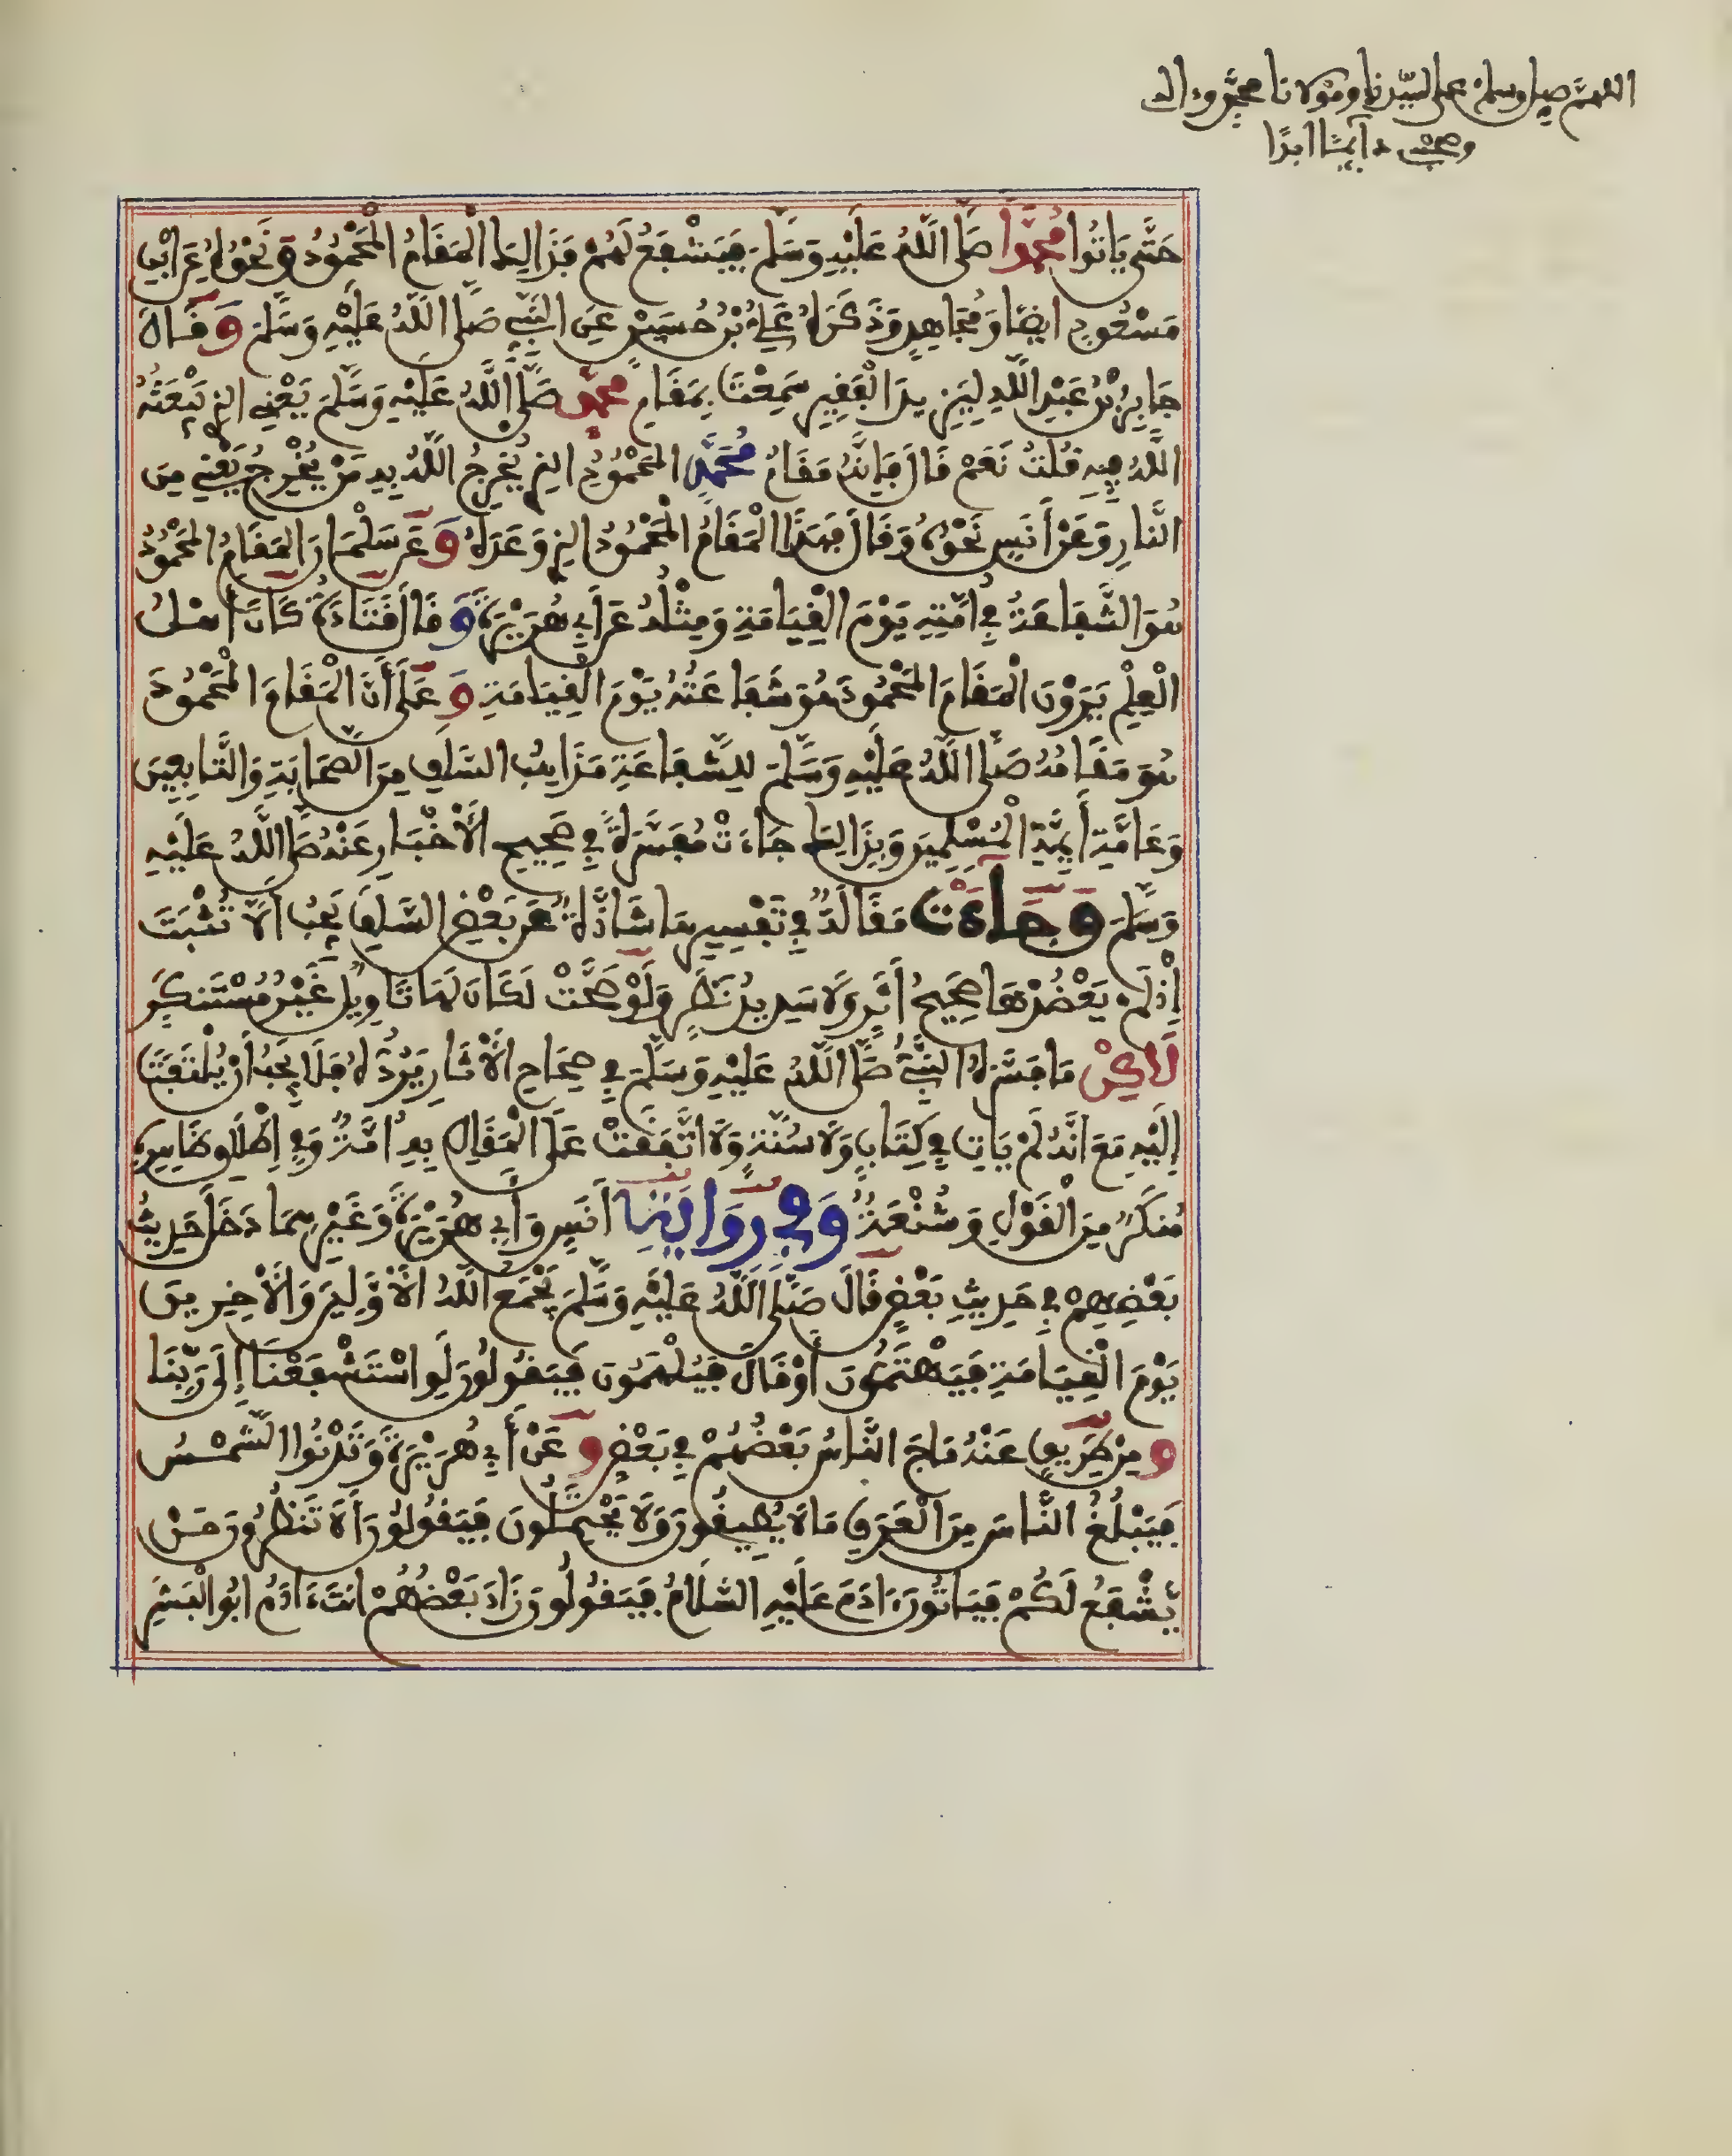 اللهم صل وسلم على سيدنا ومولانا محمد وءاله
وصحبه دآئما ابدا
حَتَّى يَاتُوا مُحَمَّدًا صَلَّى اللَّهُ عَلَيْهِ وَسَلَّمَ فَيَشْفَعُ لَهُمْ فَذَالِكَ الْمَقَامُ الْمَحْمُودُ وَنَحْوُهُ عَنِ ابْنِ
مَسْعُودٍ ايضًا وَمُجَاهِدٍ وَذَكَرَهُ عَلِيُّ بْنُ حُسَيْنٍ عَنِ النَّبِيِّ صَلَّى اللَّهُ عَلَيْهِ وَسَلَّمَ وَقَالَ
جَابِرُ بْنُ عَبْدِ اللَّهِ لِيَزِيدَ الْفَقِيرِ سَمِعْتَ بِمَقَامِ مُحَمَّدٍ صَلَّى اللَّهُ عَلَيْهِ وَسَلَّمَ يَعْنِي الذِي يَبْعَثُهُ
اللَّهُ فِيهِ قُلْتُ نَعَمْ قَالَ فَإِنَّهُ مَقَامُ مُحَمَّدٍ الْمَحْمُودُ الذِي يُخْرِجُ اللَّهُ بِهِ مَنْ يُخْرِجُ يَعْنِي مِنَ
النَّارِ وَعَنْ أَنَسٍ نَحْوُهُ وَقَالَ فَهَذَا الْمَقَامُ الْمَحْمُودُ الذِي وُعِدَهُ وَعَنْ سَلْمَانَ الْمَقَامُ الْمَحْمُودُ
هُوَ الشَّفَاعَةُ فِي أُمَّتِهِ يَوْمَ الْقِيَامَةِ وَمِثْلُهُ عَنْ أَبِي هُرَيْرَةَ وَقَالَ قَتَادَةُ كَانَ أَهْلُ
الْعِلْمِ يَرَوْنَ الْمَقَامَ الْمَحْمُودَ هُوَ شَفَاعَتُهُ يَوْمَ الْقِيَامَةِ وَعَلَى أَنَّ الْمَقَامَ الْمَحْمُودَ
هُوَ مَقَامُهُ صَلَّى اللَّهُ عَلَيْهِ وَسَلَّمَ لِلشَّفَاعَةِ مَذَاهِبُ السَّلَفِ مِنَ الصَّحَابَةِ وَالتَّابِعِينَ
وَعَامَّةِ أَيِمَّةِ الْمُسْلِمِينَ وَبِذَالِكَ جَاءَتْ مُفَسَّرَةً فِي صَحِيحِ الْأَخْبَارِ عَنْهُ صَلَّى اللَّهُ عَلَيْهِ
وَسَلَّمَ وَجَآءَتْ مَقَالَةٌ فِي تَفْسِيرِهَا شَاذَّةٌ عَنْ بَعْضِ السَّلَفِ يَجِبُ أَلَّا تُثْبَتَ
إِذْ لَمْ يَعْضُدْهَا صَحِيحُ أَثَرٍ وَلَا سَدِيدُ نَظَرٍ وَلَوْ صَحَّتْ لَكَانَ لَهَا تَاوِيلٌ غَيْرُ مُسْتَنْكَرٍ
لَاكِنْ مَا فَسَّرَهُ النَّبِيُّ صَلَّى اللَّهُ عَلَيْهِ وَسَلَّمَ فِي صِحَاحِ الْأَثَارِ يَرُدُّهُ فَلَا يَجِبُ أَنْ يُلْتَفَتَ
إِلَيْهِ مَعَ أَنَّهُ لَمْ يَاتِ فِي كِتَابٍ وَلَا سُنَّةٍ وَلَا اتَّفَقَتْ عَلَى الْمَقَالِ بِهِ أُمَّةٌ وَفِي إِطْلَاقِ ظَاهِرِهِ
مُنْكَرٌ مِنَ الْقَوْلِ وَشُنْعَةٌ وَفِي رِوَايَةِ أَنَسٍ وَأَبِي هُرَيْرَةَ وَغَيْرِهِمَا دَخَلَ حَدِيثُ
بَعْضِهِمْ فِي حَدِيثِ بَعْضٍ قَالَ صَلَّى اللَّهُ عَلَيْهِ وَسَلَّمَ يَجْمَعُ اللَّهُ الْأَوَّلِينَ وَالْأَخِرِينَ
يَوْمَ الْقِيَامَةِ فَيَهْتَمُّونَ أَوْ قَالَ فَيُلْهَمُونَ فَيَقُولُونَ لَوِ اسْتَشْفَعْنَا إِلَى رَبِّنَا
وَمِنْ طَرِيقٍ عَنْهُ مَاجَ النَّاسُ بَعْضُهُمْ فِي بَعْضٍ وَعَنْ أَبِي هُرَيْرَةَ وَتَدْنُوا الشَّمْسُ
فَيَبْلُغُ النَّاسَ مِنَ الْغَمِّ مَا لَا يُطِيقُونَ وَلَا يَحْتَمِلُونَ فَيَقُولُونَ أَلَا تَنْظُرُونَ مَنْ
يَّشْفَعُ لَكُمْ فَيَاتُونَ ءَادَمَ عَلَيْهِ السَّلَامُ فَيَقُولُونَ زَادَ بَعْضُهُمْ انتَ ءَادَمُ ابُو الْبَشَرِ